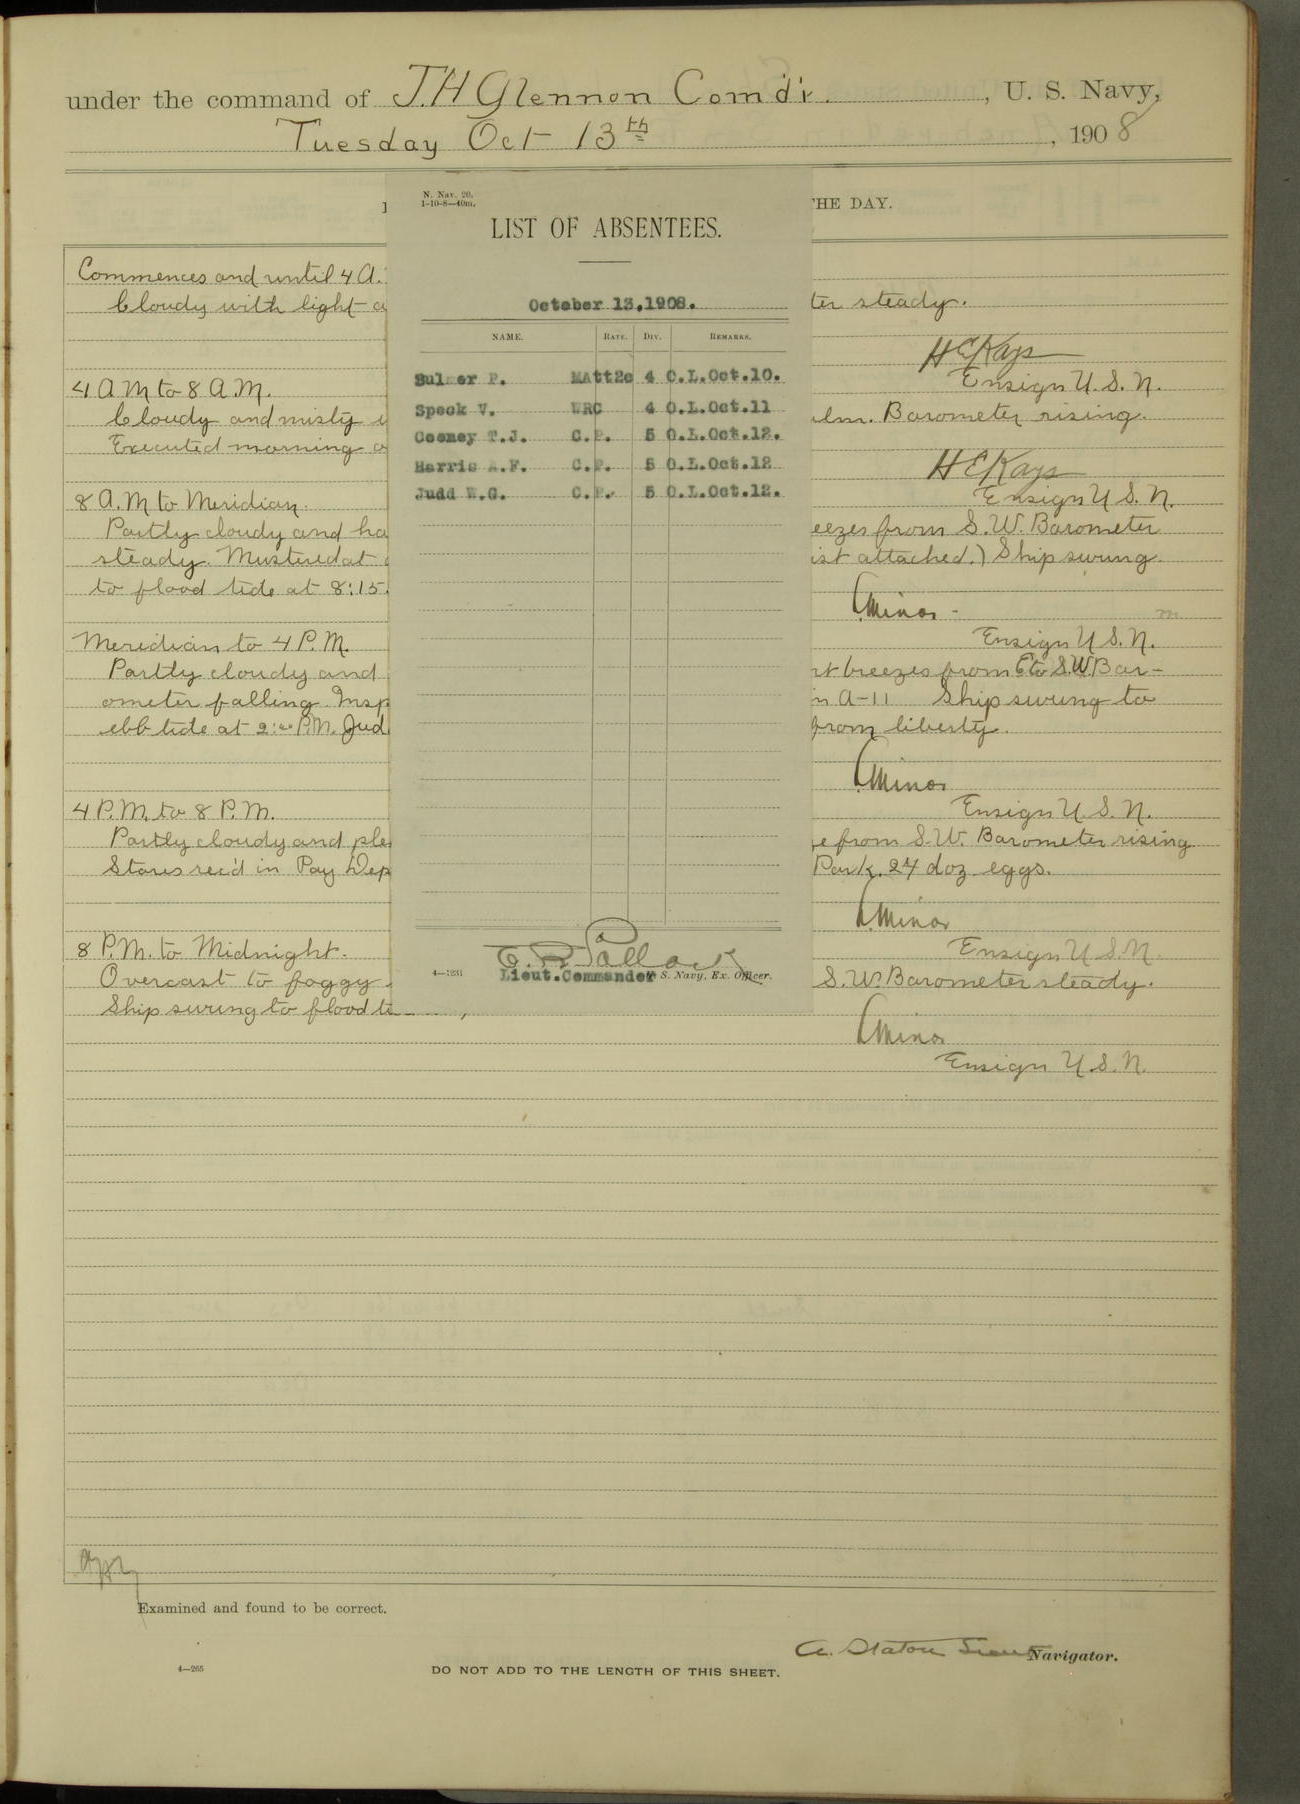 under the command of J.H Glennon Com'd'r. , U. S. Navy,
Tuesday Oct 13th , 1908
THE DAY.
N. Nav. 20.
1-10-8—40m.
LIST OF ABSENTEES.
October 13,1908.
NAME. RATE. DIV. REMARKS.
Bulmer P. MAtt2c 4 O.L.Oct.10.
Speck V. WRC 4 O.L.Oct.11
Cooney T.J. C.P. 5 O.L.Oct.12.
Harris A.F. C.P. 5 O.L.Oct.12
Judd W.G. C.P. 5 O.L.Oct.12.
Lieut.Commander S. Navy, Ex. Officer.
4—1231
Commences and until 4 A.
Cloudy with light steady.
H E Kays
Ensign U.S.N.
4 A M to 8 A.M.
Cloudy and misty Barometer rising.
Executed morning
H E Kays
Ensign U S.N.
8 A.M to Meridian.
Partly cloudy and from S.W. Barometer
steady. Mustered at attached.) Ship swung
to flood tide at 8:15.
Minor
Ensign U S.N.
Meridian to 4 P.M.
Partly cloudy and breezes from E to S.W Bar-
ometer falling. A-11 Ship swung to
ebb tide at P.M. from liberty.
Minor
Ensign U.S.N.
4 P.M. to 8 P.M.
Partly cloudy and from S.W. Barometer rising
Stores rec'd in Pay Park. 24 doz eggs.
Minor
Ensign U.S.N.
8 P.M. to Midnight.
Overcast to foggy S.W. Barometer steady.
Ship swung to flood
Minor
Ensign U.S.N.
Examined and found to be correct.
A. Staton Lieut Navigator.
4—265
DO NOT ADD TO THE LENGTH OF THIS SHEET.